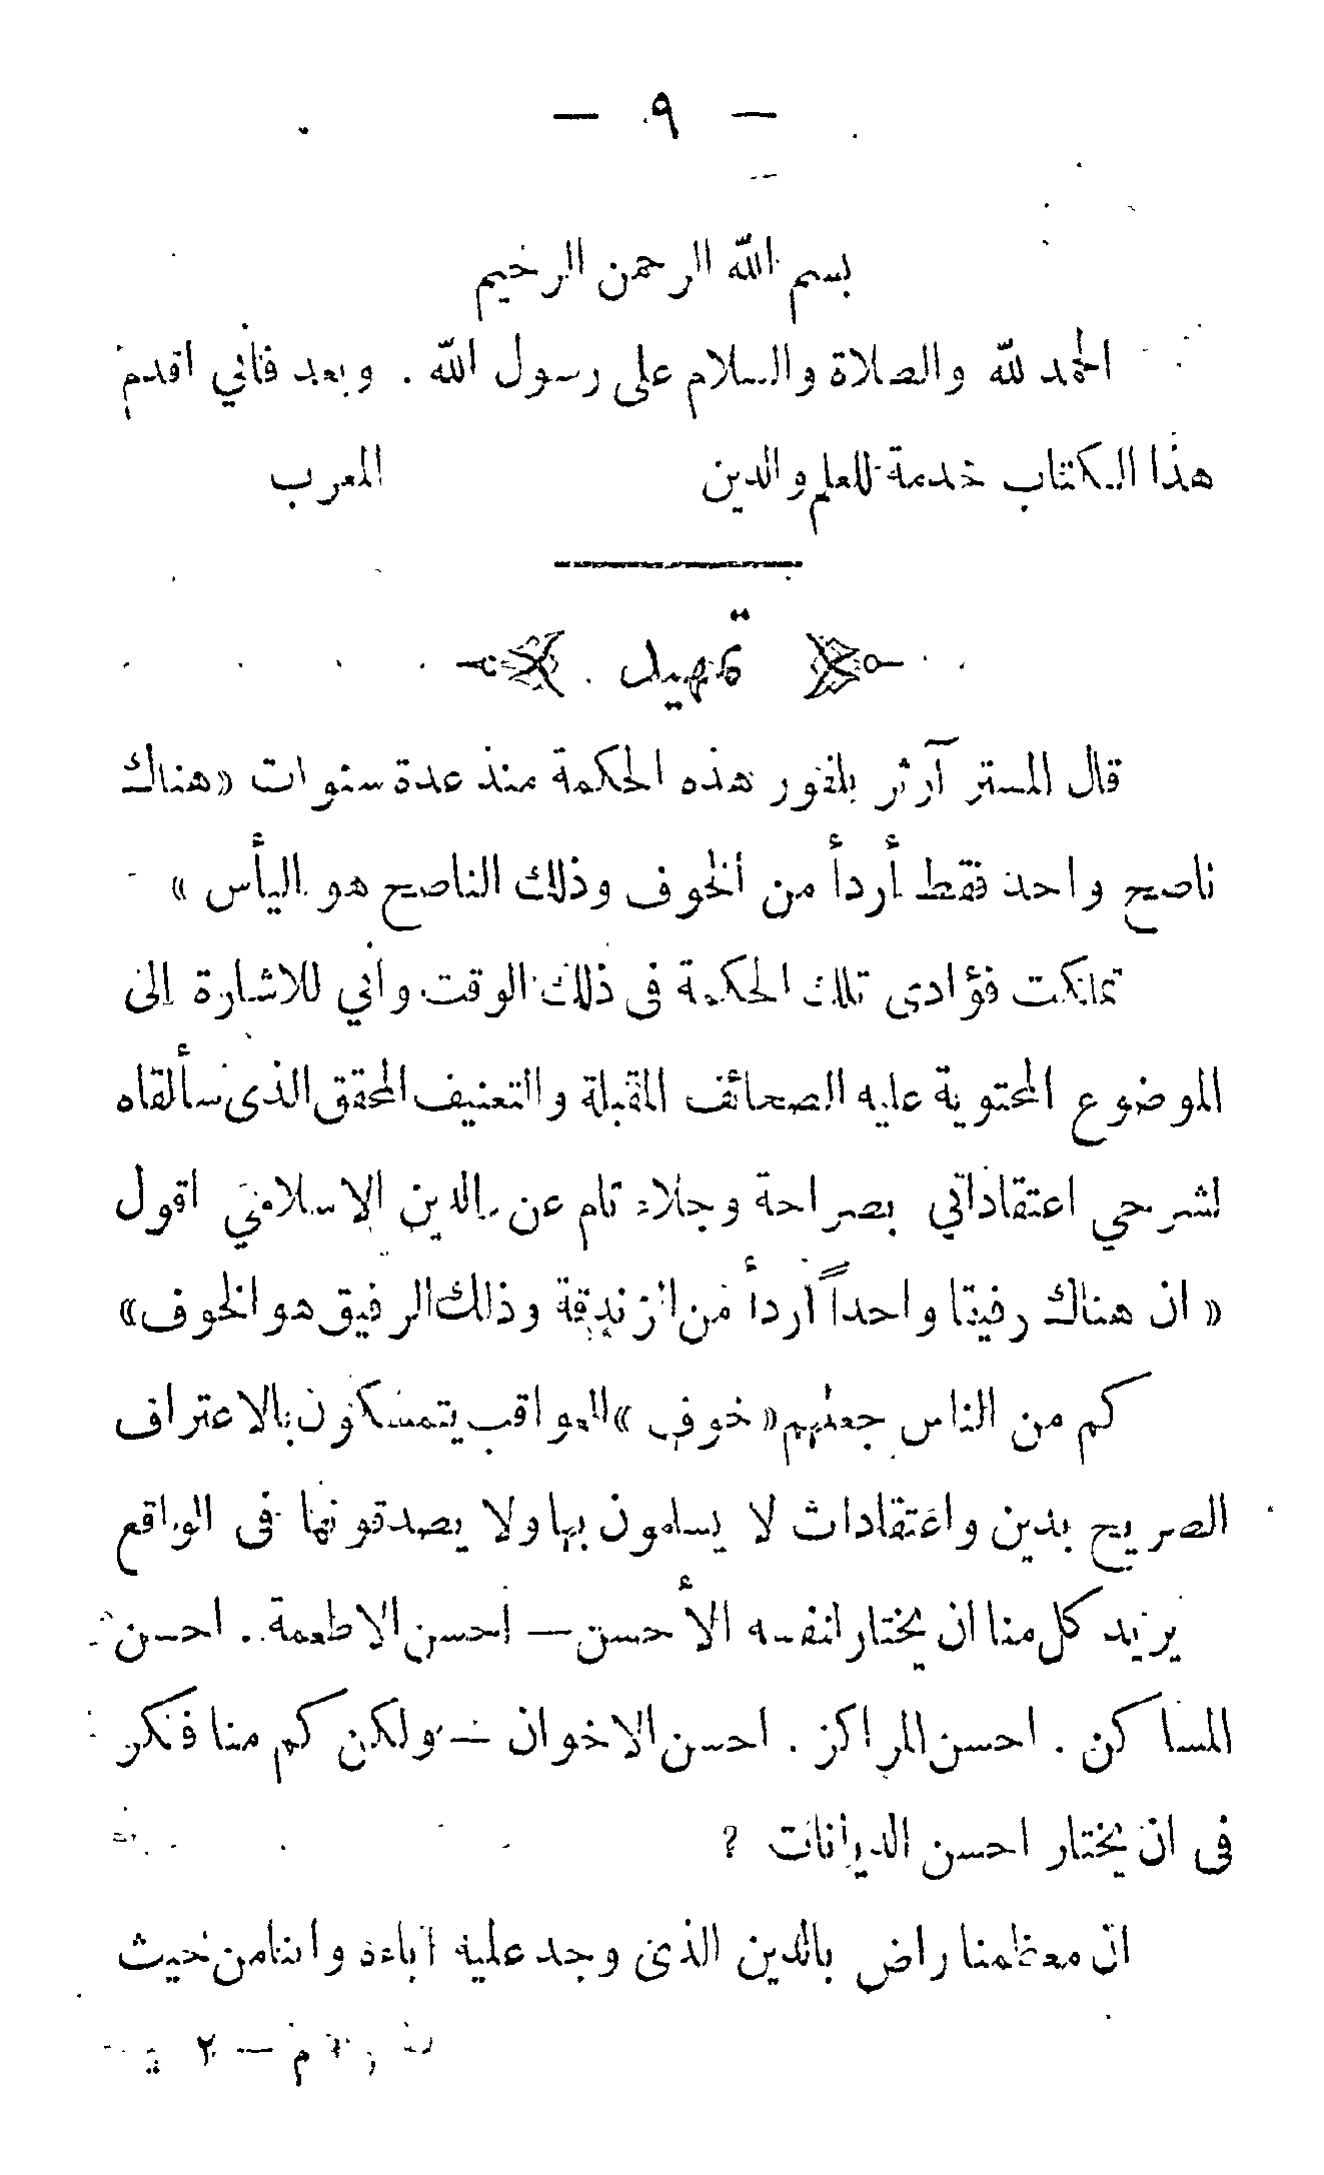 — ٩ —
بسم الله الرحمن الرحيم
الحمد لله والصلاة والسلام على رسول الله . وبعد فأني اقدم
هذا الكتاب خدمة للعلم والدين المعرب
تمهيد
قال المستر آرثر بلفور هذه الحكمة منذ عدة سنوات «هناك
ناصح واحد فقط أردأ من الخوف وذلك الناصح هو اليأس »
تملكت فؤادى تلك الحكمة فى ذلك الوقت وأني للاشارة إلى
الموضوع المحتوية عليه الصحائف المقبلة والتعنيف المحقق الذى سألقاه
لشرحي اعتقاداتي بصراحة وجلاء تام عن الدين الاسلامي اقول
« ان هناك رفيقا واحداً أردأ من الزندقة وذلك الرفيق هو الخوف»
كم من الناس جعلهم «خوف» العواقب يتمسكون بالاعتراف
الصريح بدين واعتقادات لا يسلمون بها ولا يصدقونها فى الواقع
يريد كل منا ان يختار لنفسه الأحسن — احسن الاطعمة . احسن
المساكن . احسن المراكز . احسن الاخوان — ولكن كم منا فكر
فى ان يختار احسن الديانات ?
ان معظمنا راض بالدين الذى وجد عليه آباءه واننا من حيث
م — ٢